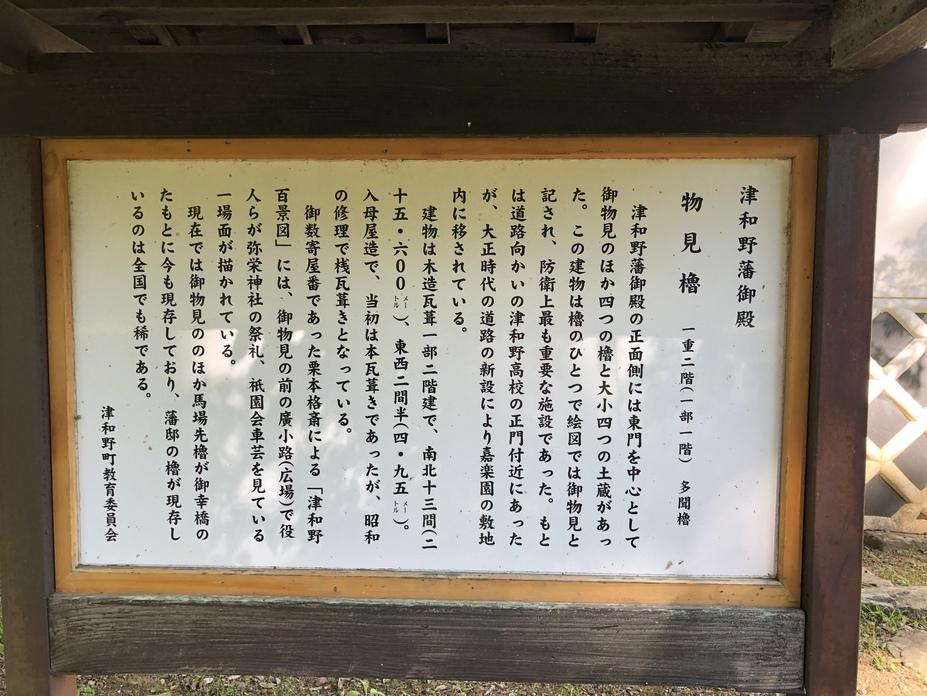 津和野藩御殿
物見櫓 一重二階(一部一階) 多聞櫓
津和野藩御殿の正面側には東門を中心として
御物見のほか四つの櫓と大小四つの土蔵があっ
た。この建物は櫓のひとつで絵図では御物見と
記され、防衛上最も重要な施設であった。もと
は道路向かいの津和野高校の正門付近にあった
が、大正時代の道路の新設により嘉楽園の敷地
内に移されている。
建物は木造瓦葺一部二階建で、南北十三間(二
十五・六〇〇メートル)、東西二間半(四・九五メートル)。
入母屋造で、当初は本瓦葺きであったが、昭和
の修理で桟瓦葺きとなっている。
御数寄屋番であった栗本格斎による「津和野
百景図」には、御物見の前の廣小路(広場)で役
人らが弥栄神社の祭礼、祇園会車芸を見ている
一場面が描かれている。
現在では御物見ののほか馬場先櫓が御幸橋の
たもとに今も現存しており、藩邸の櫓が現存し
いるのは全国でも稀である。
津和野町教育委員会